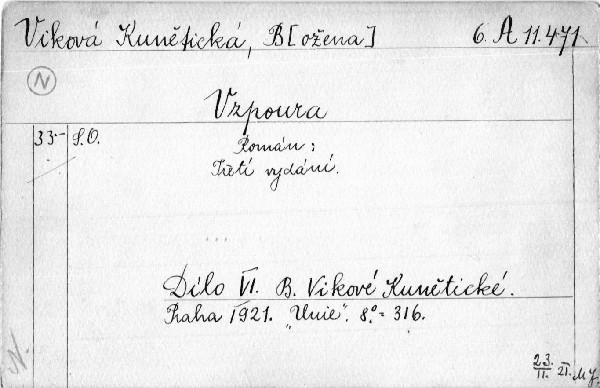 Viková Kunětická, B[ožena] 6. A 11.471.
N
Vzpoura
33- S.O. Román:
Třetí vydání.
...
Dílo VI. B. Vikové Kunětické.
Praha 1921. "Unie". 8.° = 316.
N.
23. / II. 21. MJ